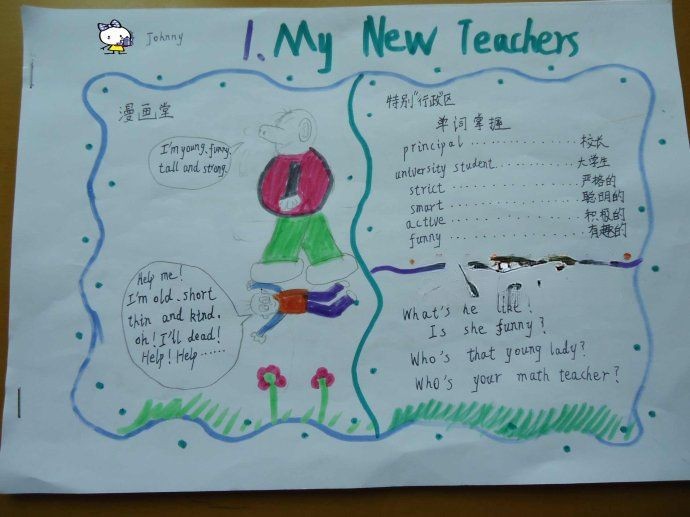 Johnny
1. My New Teachers
漫画堂
I'm young, funny,
tall and strong.
Help me!
I'm old, short
thin and kind.
oh! I'll dead!
Help! Help......
特别"行政"区
单词掌握
principal ............... 校长
university student ............ 大学生
strict .................... 严格的
smart .................... 聪明的
active .................... 积极的
funny .................... 有趣的
What's he like?
Is she funny?
Who's that young lady?
Who's your math teacher?